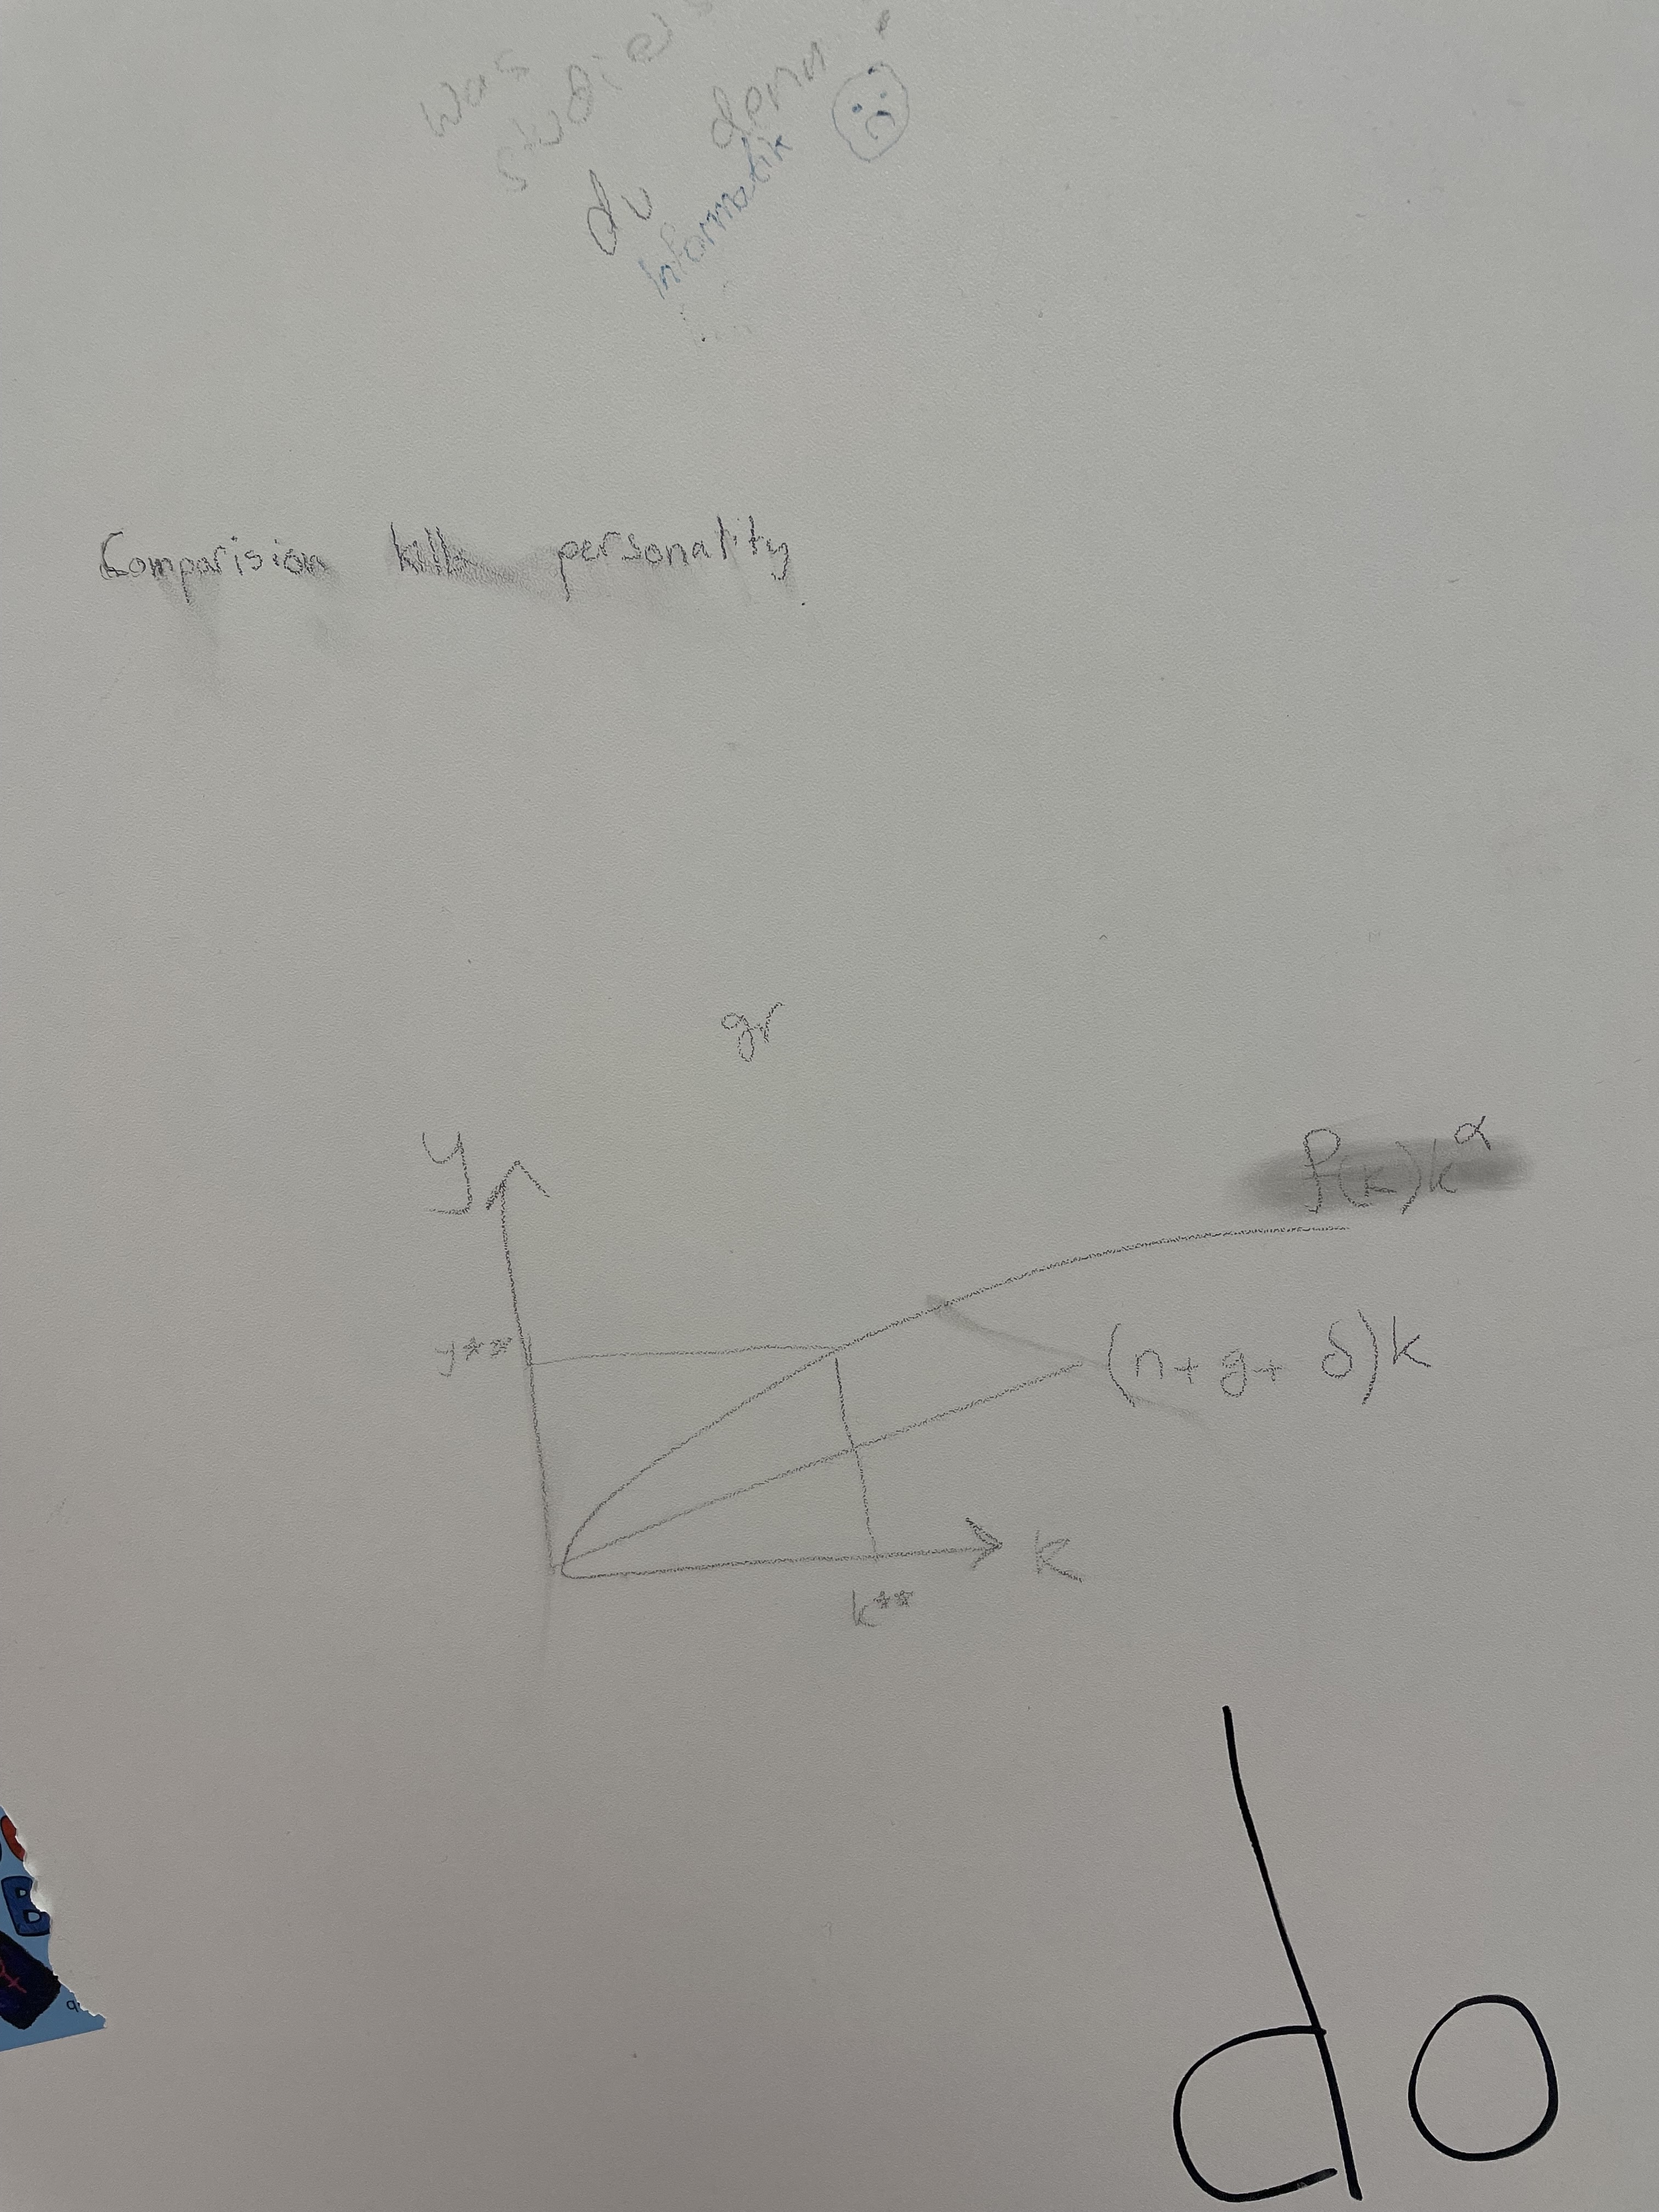 was
studierst
du denn ?
Informatik
Comparision kills personality
gr
y
f(k)k^α
y**
(n+g+ δ)k
k
k**
B
do